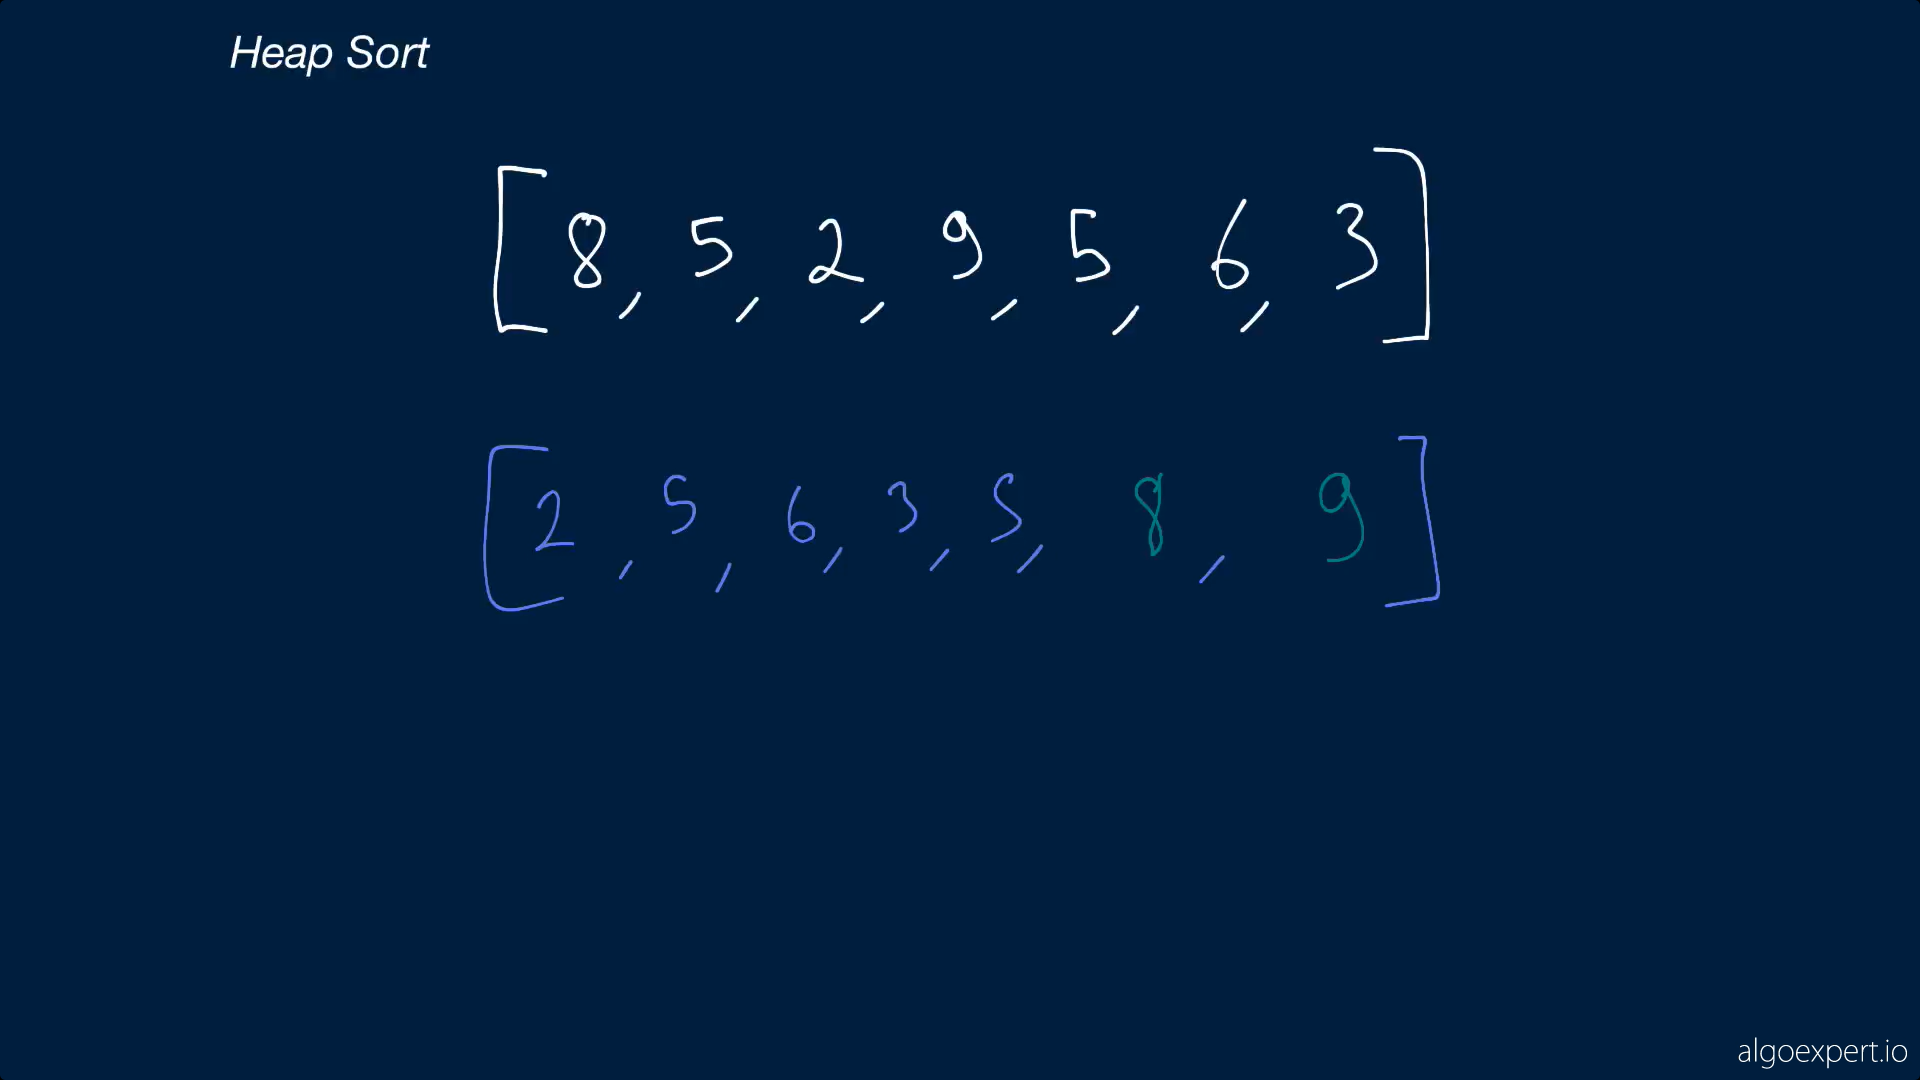 Heap Sort
[8, 5, 2, 9, 5, 6, 3]
[2, 5, 6, 3, 5, 8, 9]
algoexpert.io